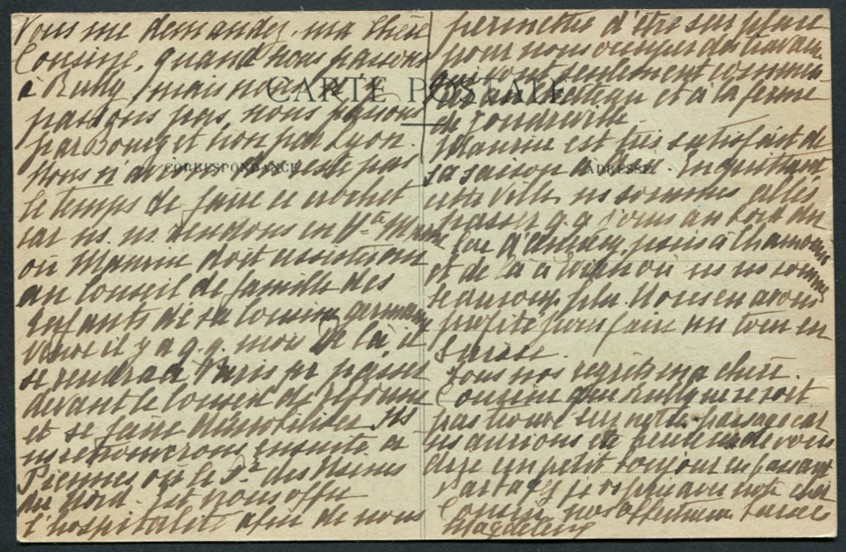 Vous me demandez, ma chère
Cousine, quand nous passons
à Rully, mais nous n'y
passons pas, nous passons
par Bourg et non par Lyon.
Nous n'au est pas
le temps de faire ce crochet
car ns. ns. rendons en Hte Marne
où Maurice doit assister
au Conseil de famille des
Enfants de sa Cousine germaine
il y a q.q. mois. De là il
se rendra à Paris pr passer
devant le Conseil de réforme
et se faire démobiliser. Ns
ns retrouverons ensuite à
Piennes où le des Usines
du Nord. Est nous offre
l'hospitalité afin de nous
CARTE POSTALE
CORRESPONDANCE
ADRESSE
permettre d'être sur place
pour nous occuper des travaux
qui sont seulement commencés
et à la ferme
de
Maurice est très satisfait de
sa saison à En quittant
cette Ville ns sommes allés
passer q.q. jours au bord du
lac d'Annecy, puis à Chamonix
et de là à où ns ns sommes
beaucoup plu. Nous en avons
profité pour faire un tour en
Suisse.
Tous nos regrets ma chère
Cousine que Rully ne se soit
pas trouvé sur notre passage car
ns aurions été de vous
dire un petit bonjour en passant.
Partagez je vs prie avec notre cher
Cousin nos affectueux baisers
Magdeleine